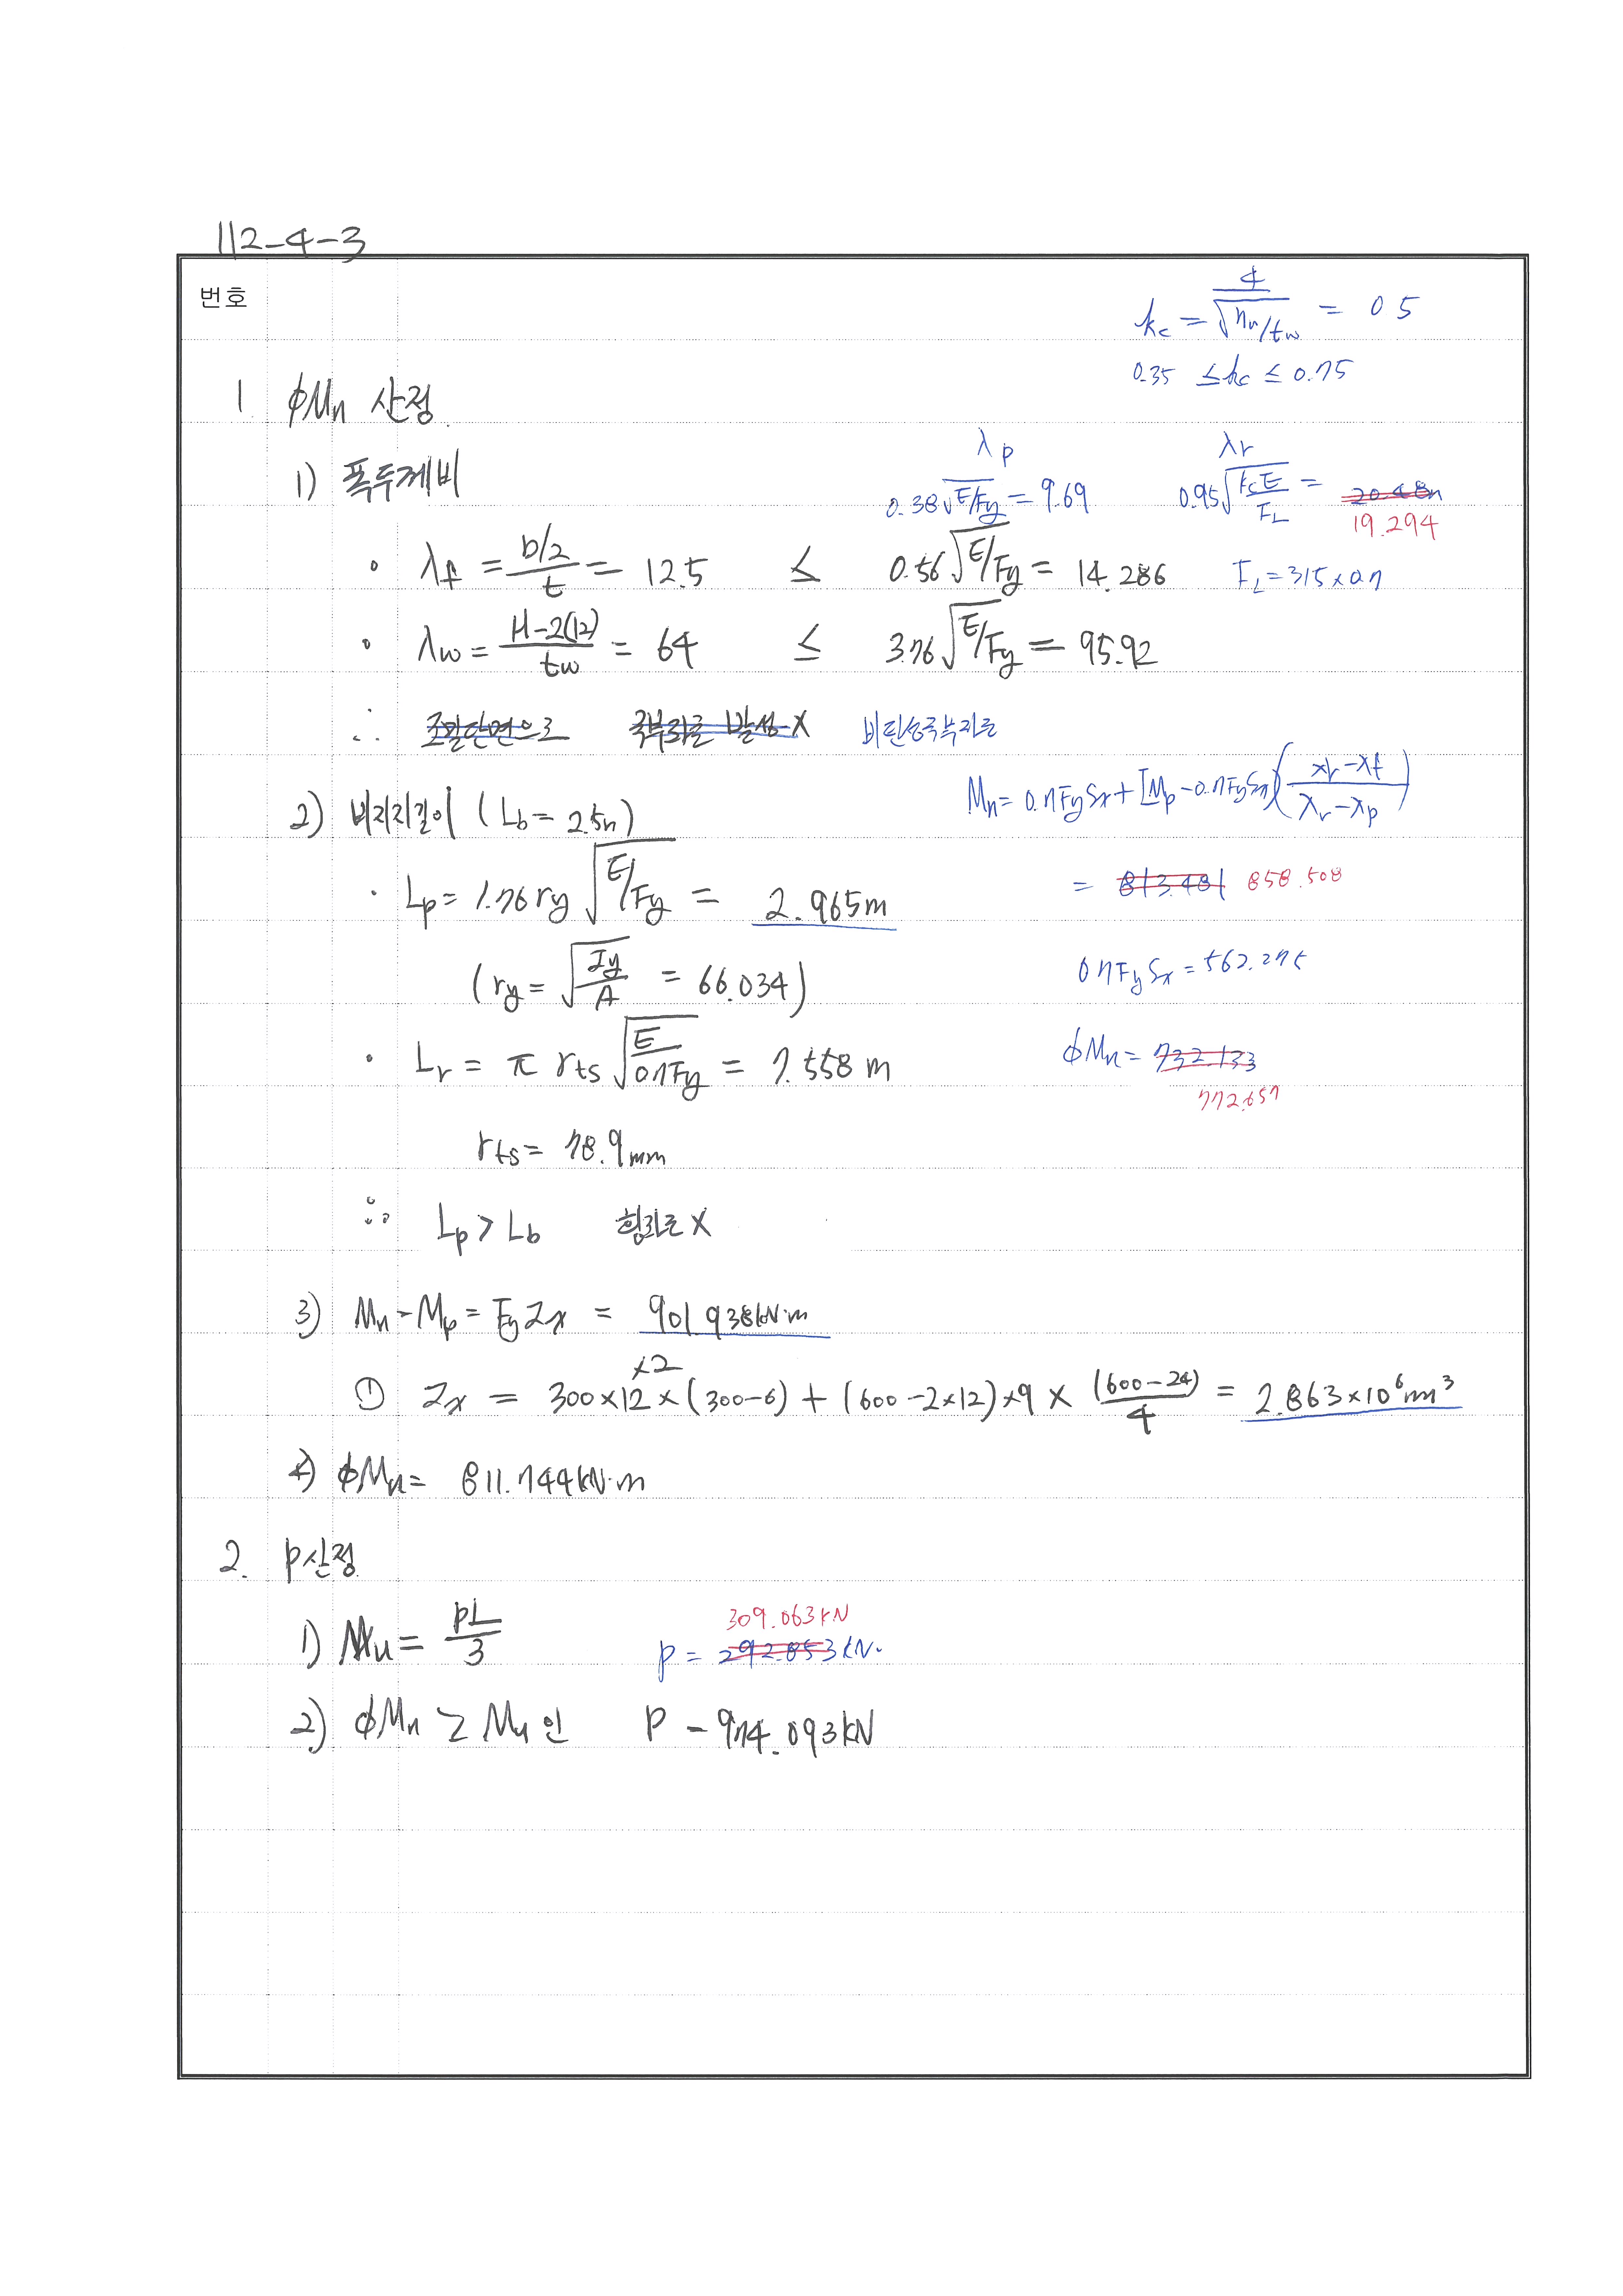 112-4-3
번호
kc = 4/√(hw/tw) = 0.5
0.35 ≤ kc ≤ 0.75
1. ϕMn 산정.
λp λr
1) 폭두께비
0.38√(E/Fy) = 9.69 0.95√(kcE/FL) = 20.48n 19.294
• λf = (b/2)/t = 12.5 ≤ 0.56√(E/Fy) = 14.286 FL = 315×0.7
• λw = (H-2(12))/tw = 64 ≤ 3.76√(E/Fy) = 95.92
∴ 조밀단면으로 국부좌굴 발생 X 비탄성국부좌굴
Mn = 0.7FySx + [Mp - 0.7FySx](λr-λf / λr-λp)
2) 비지지길이 (Lb = 2.5m)
• Lp = 1.76 ry √(E/Fy) = 2.965m
= 813.481 858.508
(ry = √(Iy/A) = 66.034)
0.7FySx = 562.275
• Lr = π rts √(E/0.7Fy) = 7.558 m
ϕMn = 732.133
772.657
rts = 78.9mm
∴ Lp > Lb 횡좌굴 X
3) Mn = Mp = Fy Zx = 901.938kN·m
×2
① Zx = 300×12×(300-6) + (600-2×12)×9×(600-24)/4 = 2.863×10⁶mm³
4) ϕMn = 811.744kN·m
2. P산정
309.063kN
1) Mu = PL/3 P = 292.853kN.
2) ϕMn ≥ Mu 인 P = 974.093kN